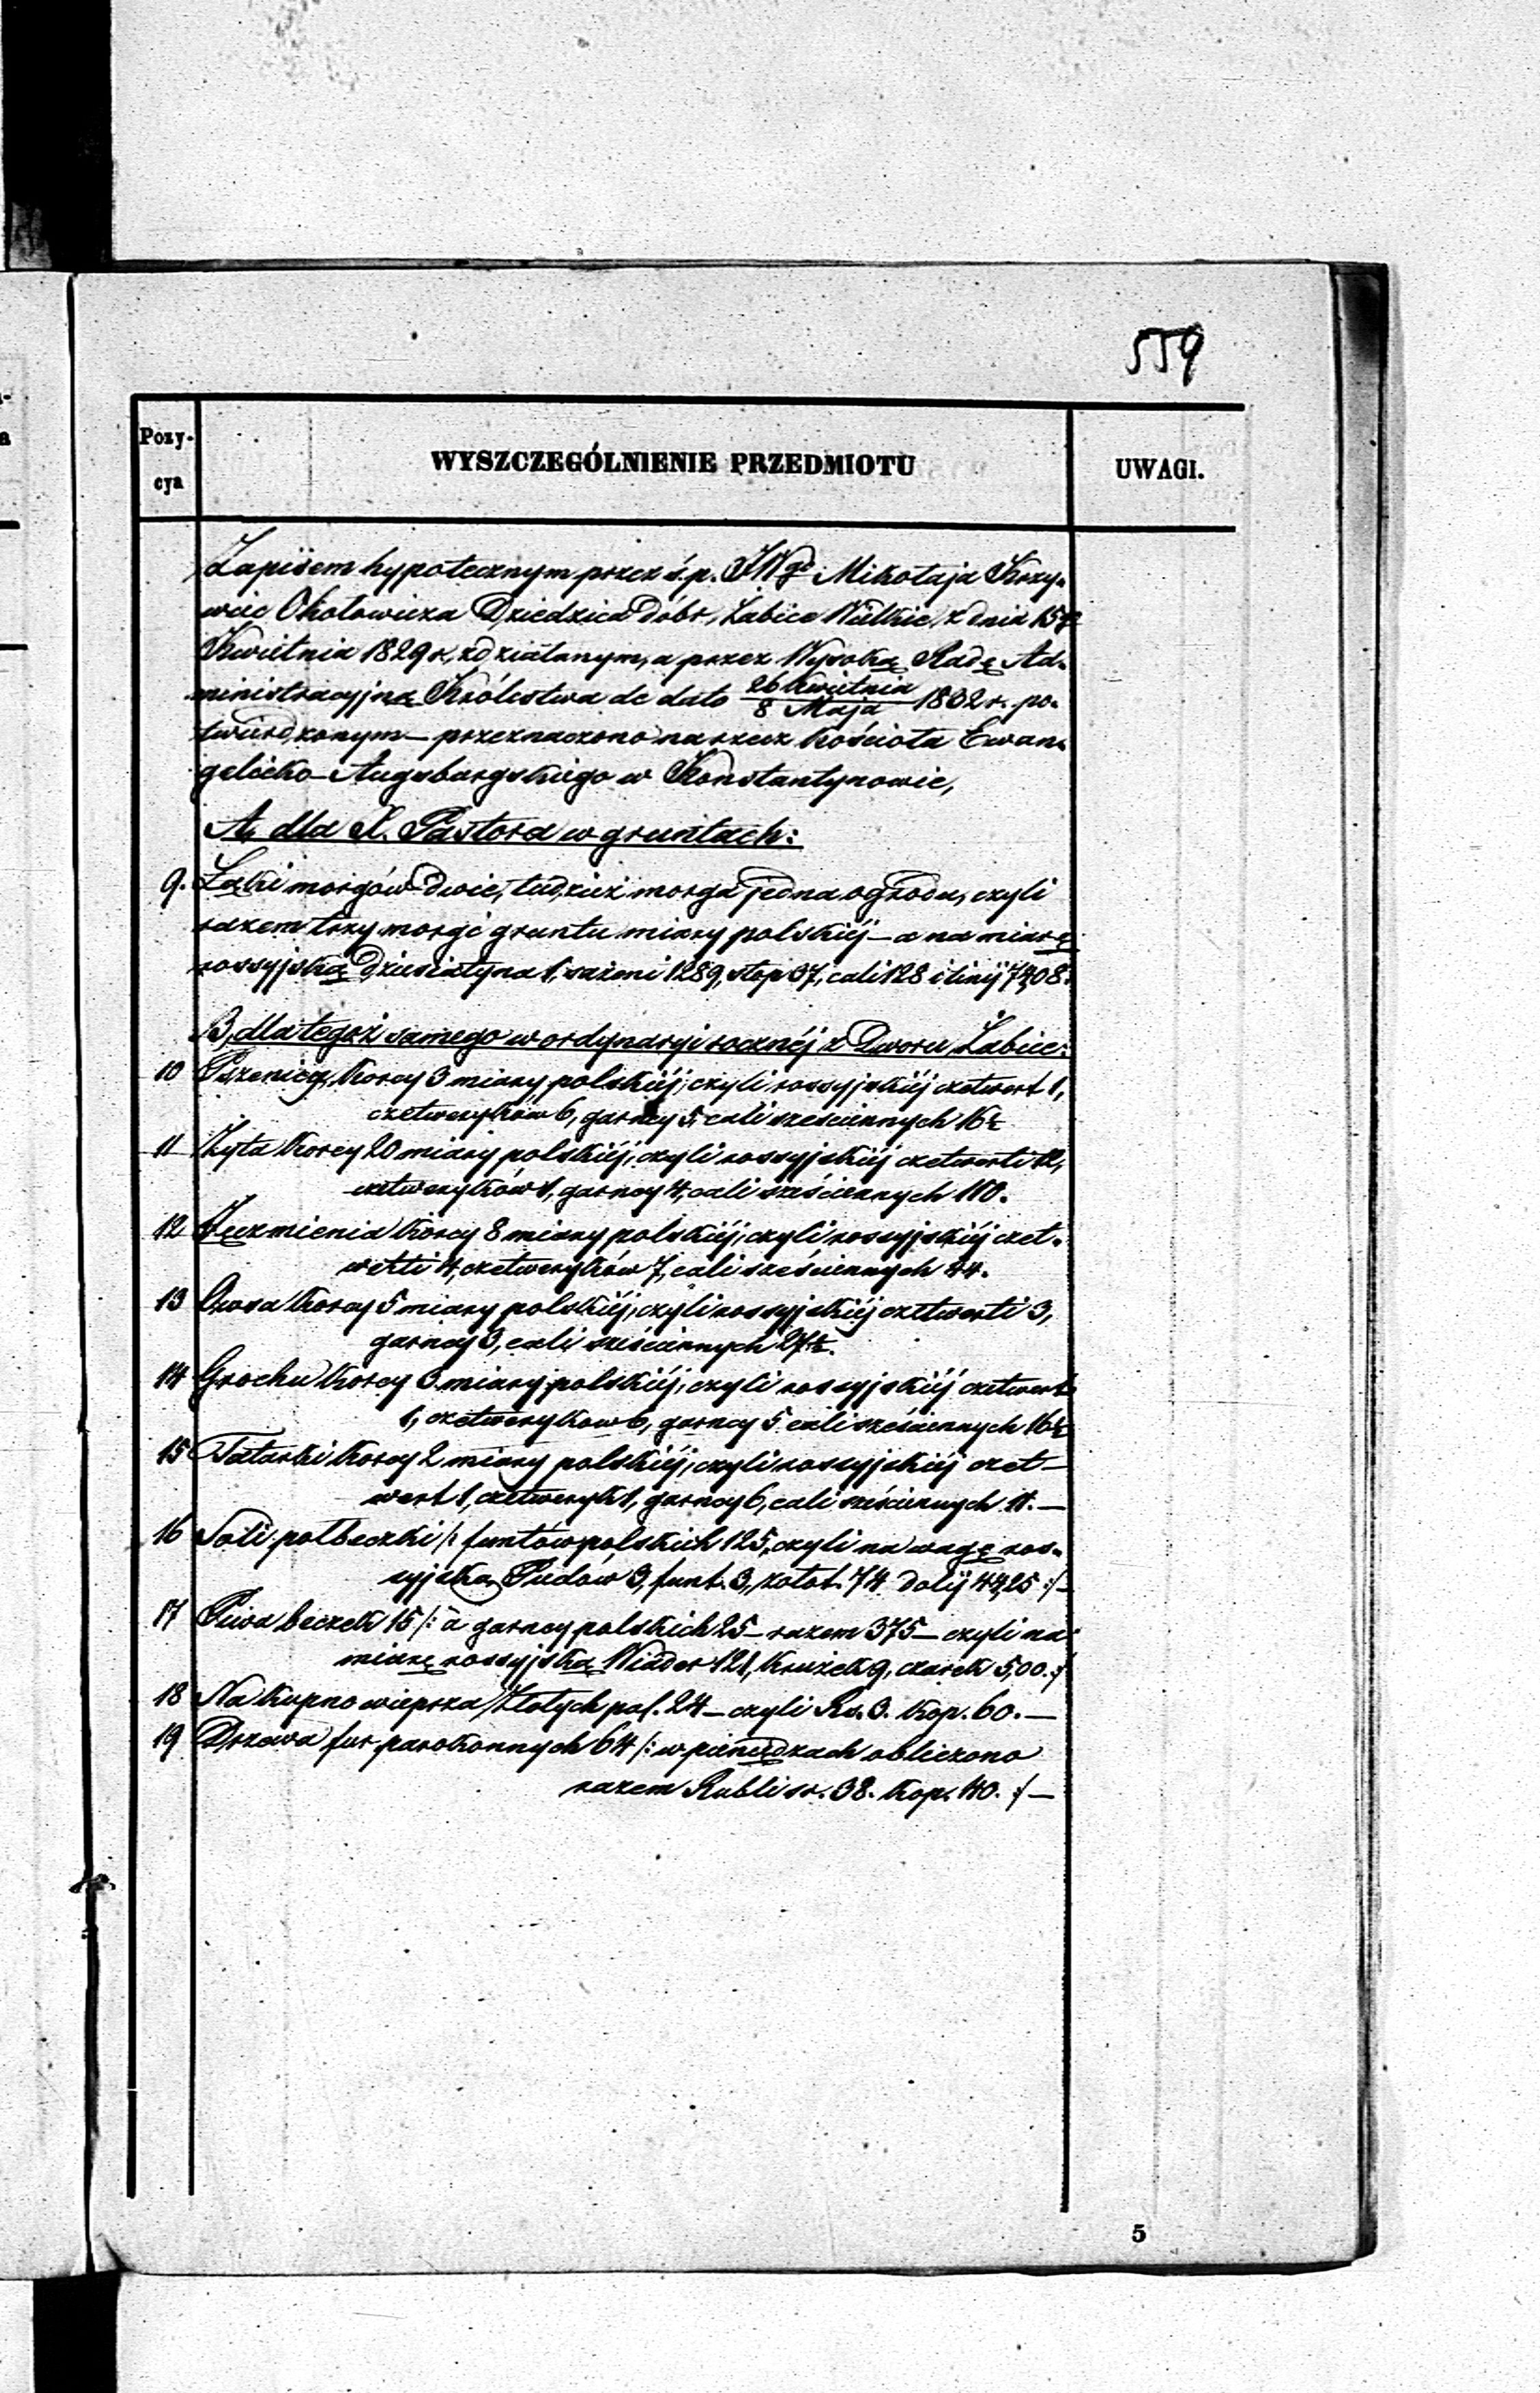 559
Pozy-
cya
WYSZCZEGÓLNIENIE PRZEDMIOTU
UWAGI.
Zapisem hypotecznym przez ś.p. JWgo Mikołaja Krzy-
wiec Okołowicza Dziedzica Dóbr, Żabice Wielkie, z dnia 15go
Kwietnia 1829 r, zdziałanym, a przez Wysoką Radę Ad-
ministracyjną Królestwa de dato 26 Kwietnia / 8 Maja 1832 r. po-
twierdzonym – przeznaczono na rzecz kościoła Ewan-
gelicko-Augsburgskiego w Konstantynowie,
A, dla X. Pastora w gruntach:
9. Łąki morgów dwie, tudzież morga jedna ogrodu, czyli
razem trzy morgi gruntu miary polskiéj – a na miarę
rossyjską Dziesiatyna 1, sażeni 1289, stop 37, cali 128 i linij 74,08.
B, dla tegoż samego w ordynaryi rocznéj z Dworu Żabice:
10 Pszenicy, korcy 3 miary polskiéj, czyli rossyjskiéj czetwert 1,
czetweryków 6, garncy 5, cali sześciennych 16½
11 Żyta korcy 20 miary polskiéj, czyli rossyjskiéj czetwerti 12,
czetweryków 1, garncy 4, cali sześciennych 110.
12 Jęczmienia korcy 8 miary polskiéj, czyli rossyjskiéj czet-
werti 4, czetweryków 7, cali sześciennych 44.
13 Owsa korcy 5 miary polskiéj, czyli rossyjskiéj czetwerti 3,
garncy 3, cali sześciennych 27½.
14 Grochu korcy 3 miary polskiéj, czyli rossyjskiéj czetwert
1, czetweryków 6, garncy 5 cali sześciennych 16½
15 Tatarki korcy 2 miary polskiéj, czyli rossyjskiéj czet-
wert 1, czetweryk 1, garncy 6, cali sześciennych 11. –
16 Soli pół beczki /: funtów polskich 125, czyli na wagę ros-
syjską Pudów 3, funt. 3, zołot. 74 dolij 44,25 :/ –
17 Piwa beczek 15 /: à garncy polskich 25 – razem 375 – czyli na
miarę rossyjską Wiader 121, kružek 9, czarek 5,00. :/
18 Na kupno wieprza Złotych pol. 24 – czyli Rs. 3. kop. 60. –
19 Drzewa fur parokonnych 64 /: w pieniądzach obliczono
razem Rubli sr. 38. kop. 40. :/ –
5